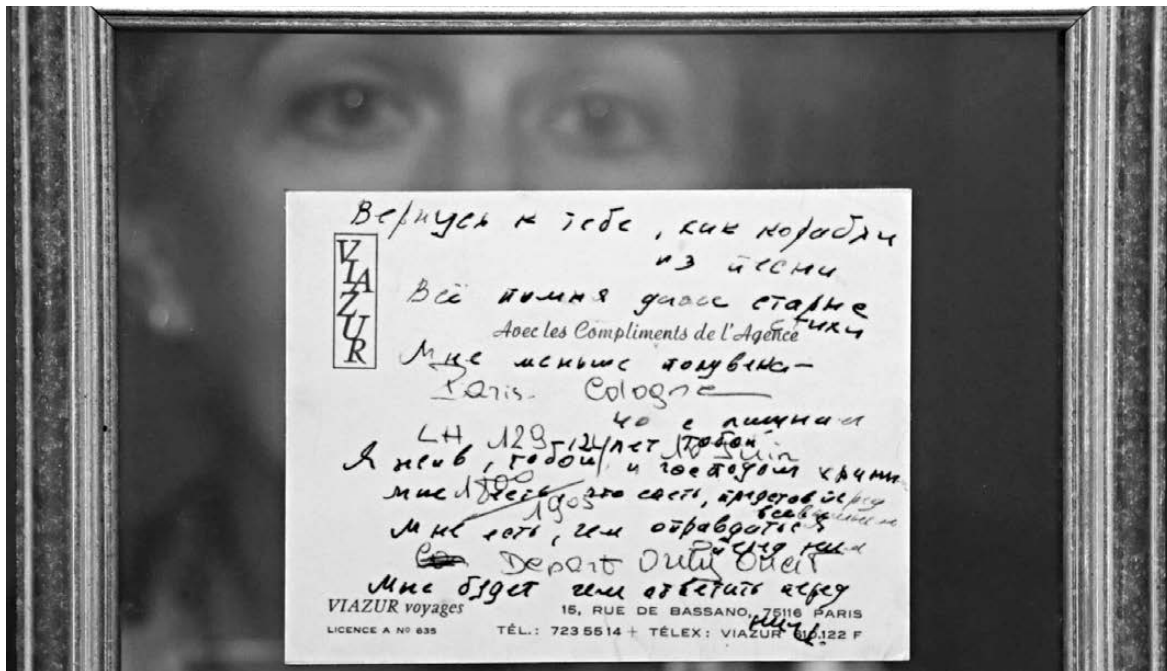 Вернусь к тебе, как корабли
из песни
VIAZUR
Всё помня даже старые
стихи
Avec les Compliments de l'Agence
Мне меньше полувека –
Paris - Cologne
40 с лишним
LH 129 - 12/ лет тобой Juin
Я жив, тобой и господом храним
мне 1800 есть, что спеть, представ перед
1905 всевышним
Мне есть, чем оправдаться
перед ним
Depart Orly Ouest
Мне будет чем ответить перед
VIAZUR voyages
15, RUE DE BASSANO, 75116 PARIS
ним.
LICENCE A Nº 635
TÉL.: 723 55 14 + TÉLEX: VIAZUR 610.122 F